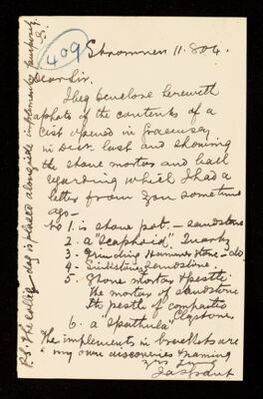 409
Stromness 11.8.04.
Dear Sir.
I beg to enclose herewith
a photo of the contents of a
cist opened in
in Decr. last and showing
the stone mortar and ball
regarding which I had a
letter from you sometime
ago—
No 1. is stone pot. — sandstone
2. a "Scaphoid". Quartz
3. Grinding Hammer stone — do.
4. Sandstone
5. Stone mortar & pestle.
the mortar of sandstone
the pestle of compactic
Claystone.
6. a "Spathula"
The implements in brackets are
my own discoveries & naming
yrs truly
P.S. The collie dog is placed alongside implements